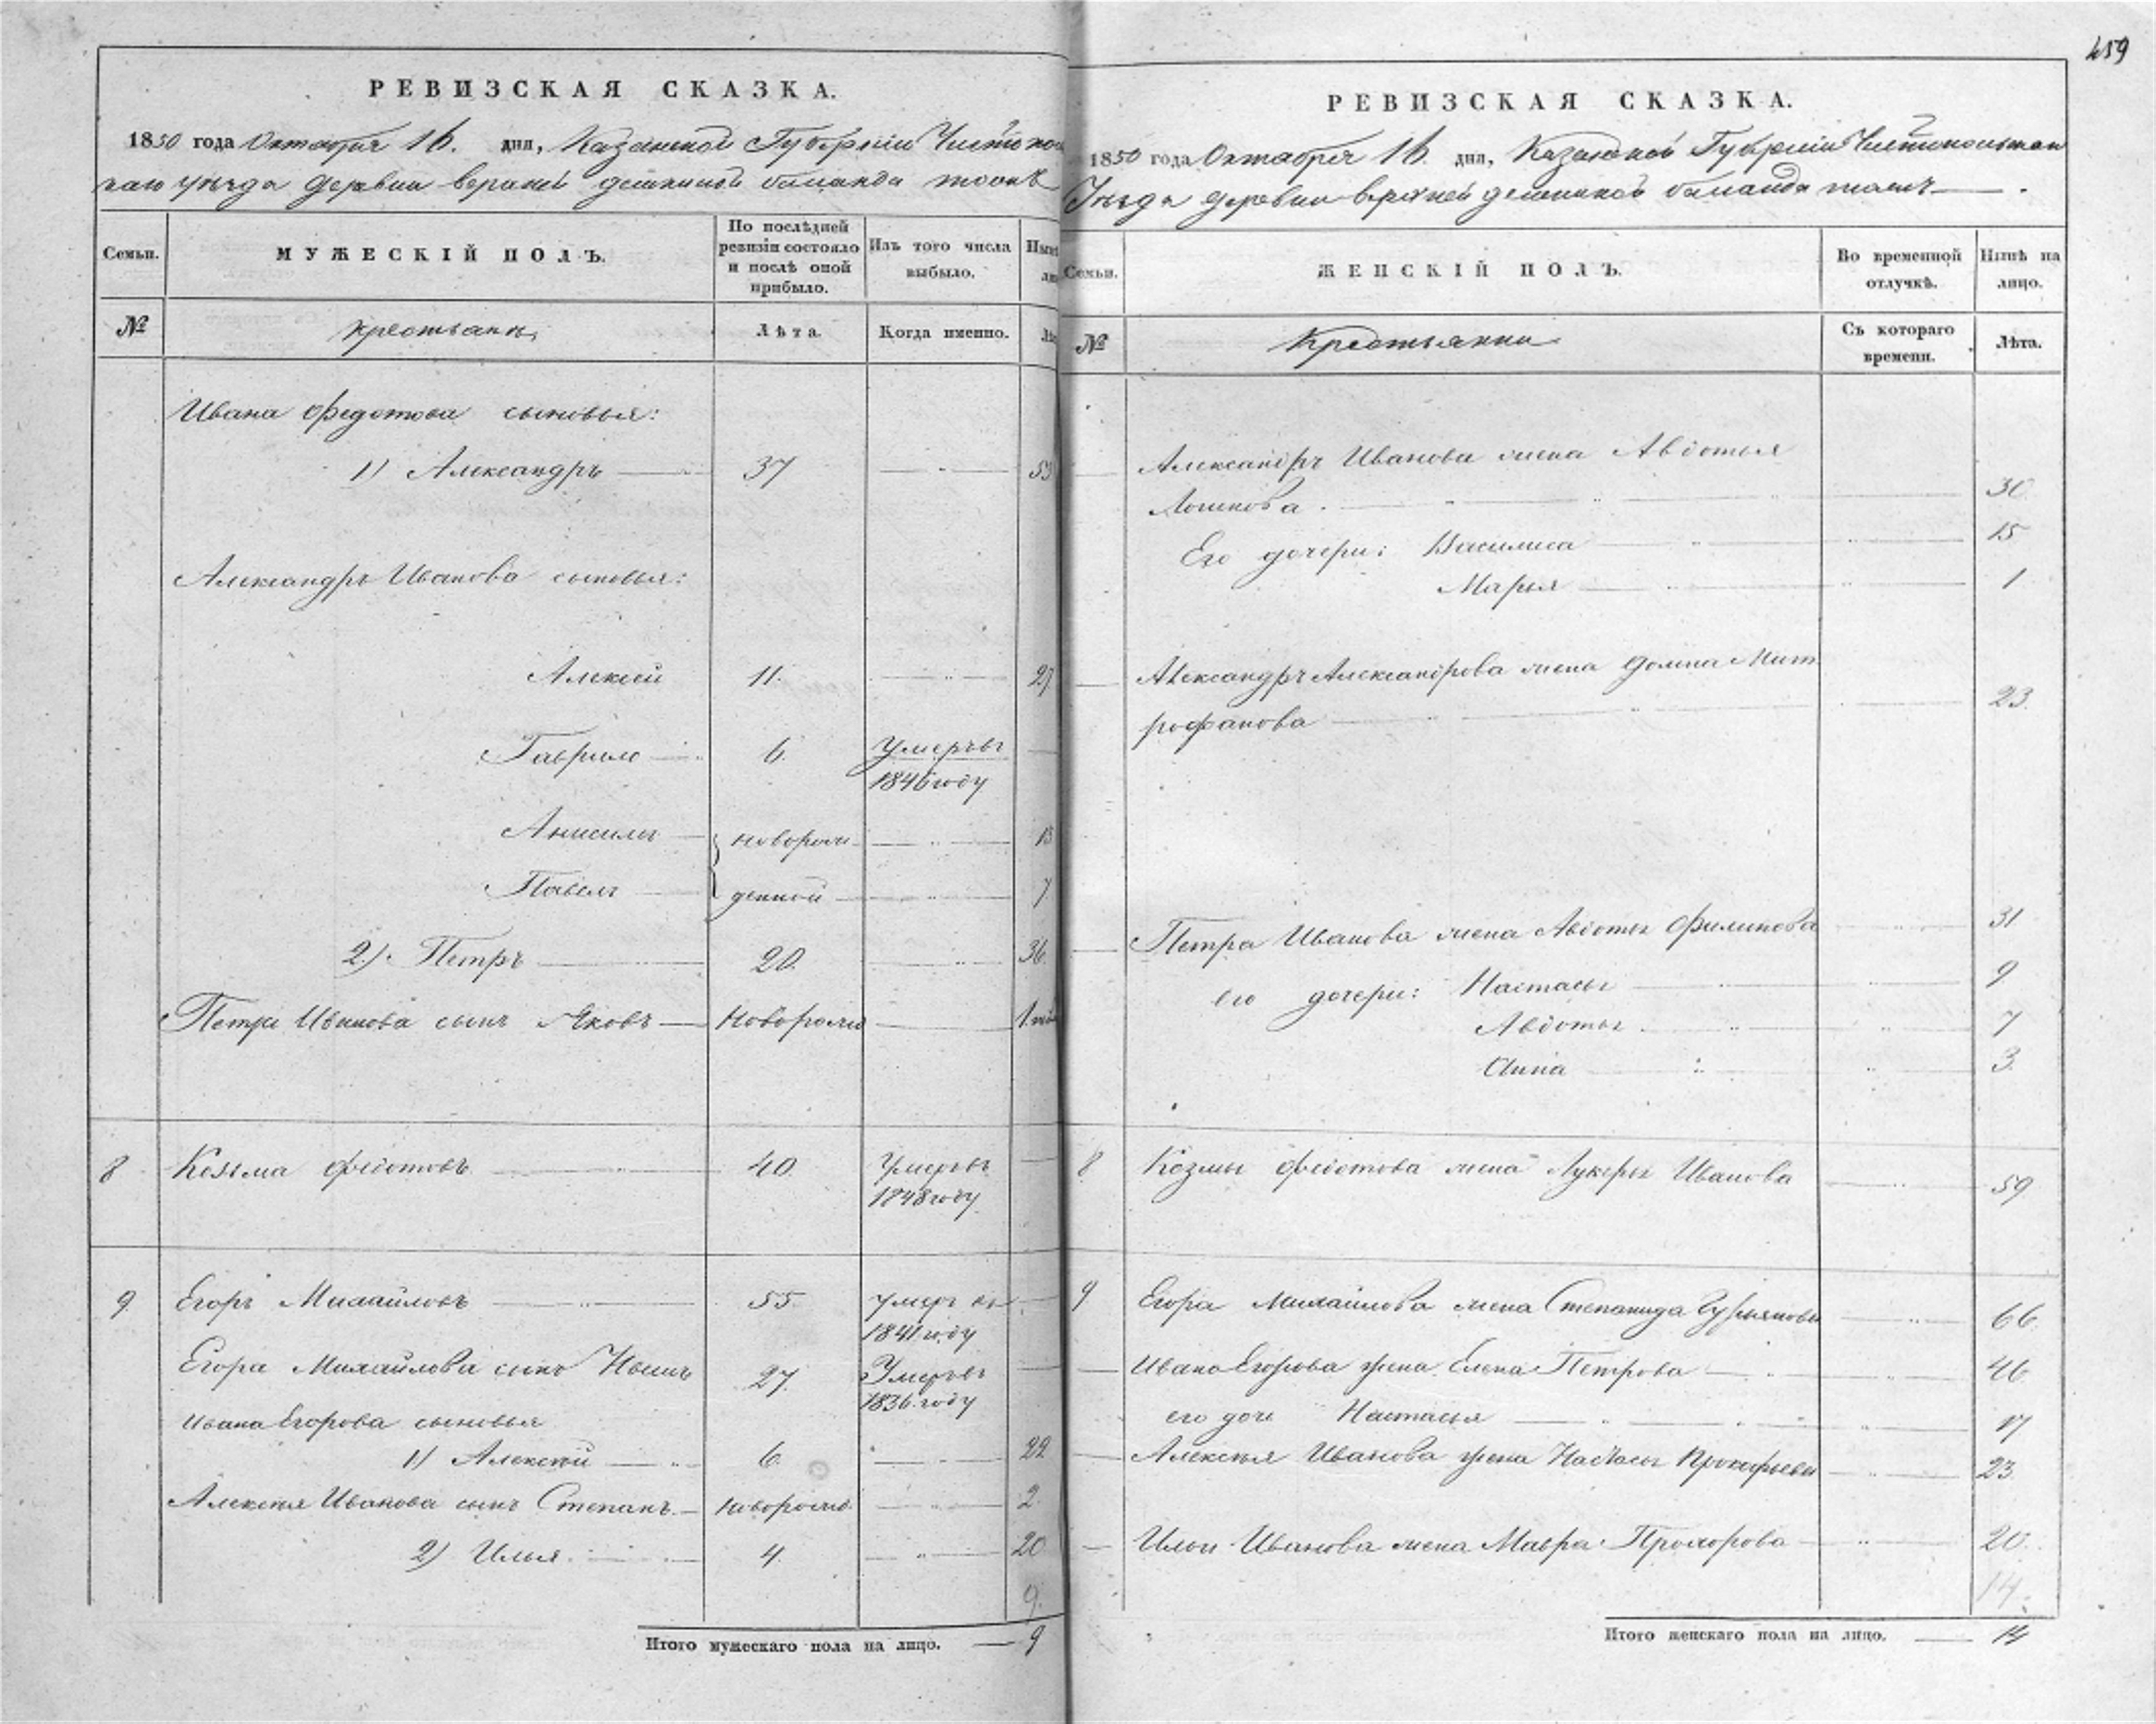 459
РЕВИЗСКАЯ СКАЗКА.
1850 года Октября 16. дня, Казанской Губернiи Чистопол
скаго уѣзда деревни верхней
Семьи.
МУЖЕСКІЙ ПОЛЪ.
По послѣдней ревизіи состояло и послѣ оной прибыло.
Изъ того числа выбыло.
№
крестьяне
Лѣта.
Когда именно.
Ивана Федотова сыновья:
1) Александръ 37 53
Александръ Иванова сыновья:
Алексей 11. 27
Гаврило 6. Умеръ въ
1846 году
Анисимъ новорож 15
Павелъ денной 7
2) Петръ 20 36
Петра Иванова сынъ Яковъ Новорожд 1
8 Козьма Федотовъ 40 Умеръ въ
1848 году
9 Егоръ Михайловъ 55 умеръ въ
1841 году
Егора Михайлова сынъ Иванъ 27. Умеръ въ
1836 году
Ивана Егорова сыновья
1) Алексѣй 6 22
Алексѣя Иванова сынъ Степанъ новорожд 2
2) Илья 4. 20
9.
Итого мужескаго пола на лицо. 9
РЕВИЗСКАЯ СКАЗКА.
1850 года Октября 16. дня, Казанской Губернiи Чистопольскаго
Уѣзда деревни верхней
Семьи.
ЖЕНСКІЙ ПОЛЪ.
Во временной отлучкѣ.
Нынѣ на лицо.
№
Крестьянки
Съ котораго времени.
Лѣта.
Александръ Иванова жена Авдотья
Логинова. 30
Его дочери: Василиса 15
Марья 1
Александръ Александрова жена Домна Мит
рофанова 23
Петра Иванова жена Авдотья Филипова 31
его дочери: Настасья 9
Авдотья 7
Анна 3
8 Козмы Федотова жена Лукерья Иванова 59
9 Егора Михайлова жена Степанида Гурьянова 66
Ивана Егорова жена Елена Петрова 46
его дочь Настасья 17
Алексѣя Иванова жена Настасья Прокофьева 23
Ильи Иванова жена Мавра Прохорова 20
14.
Итого женскаго пола на лицо. 14